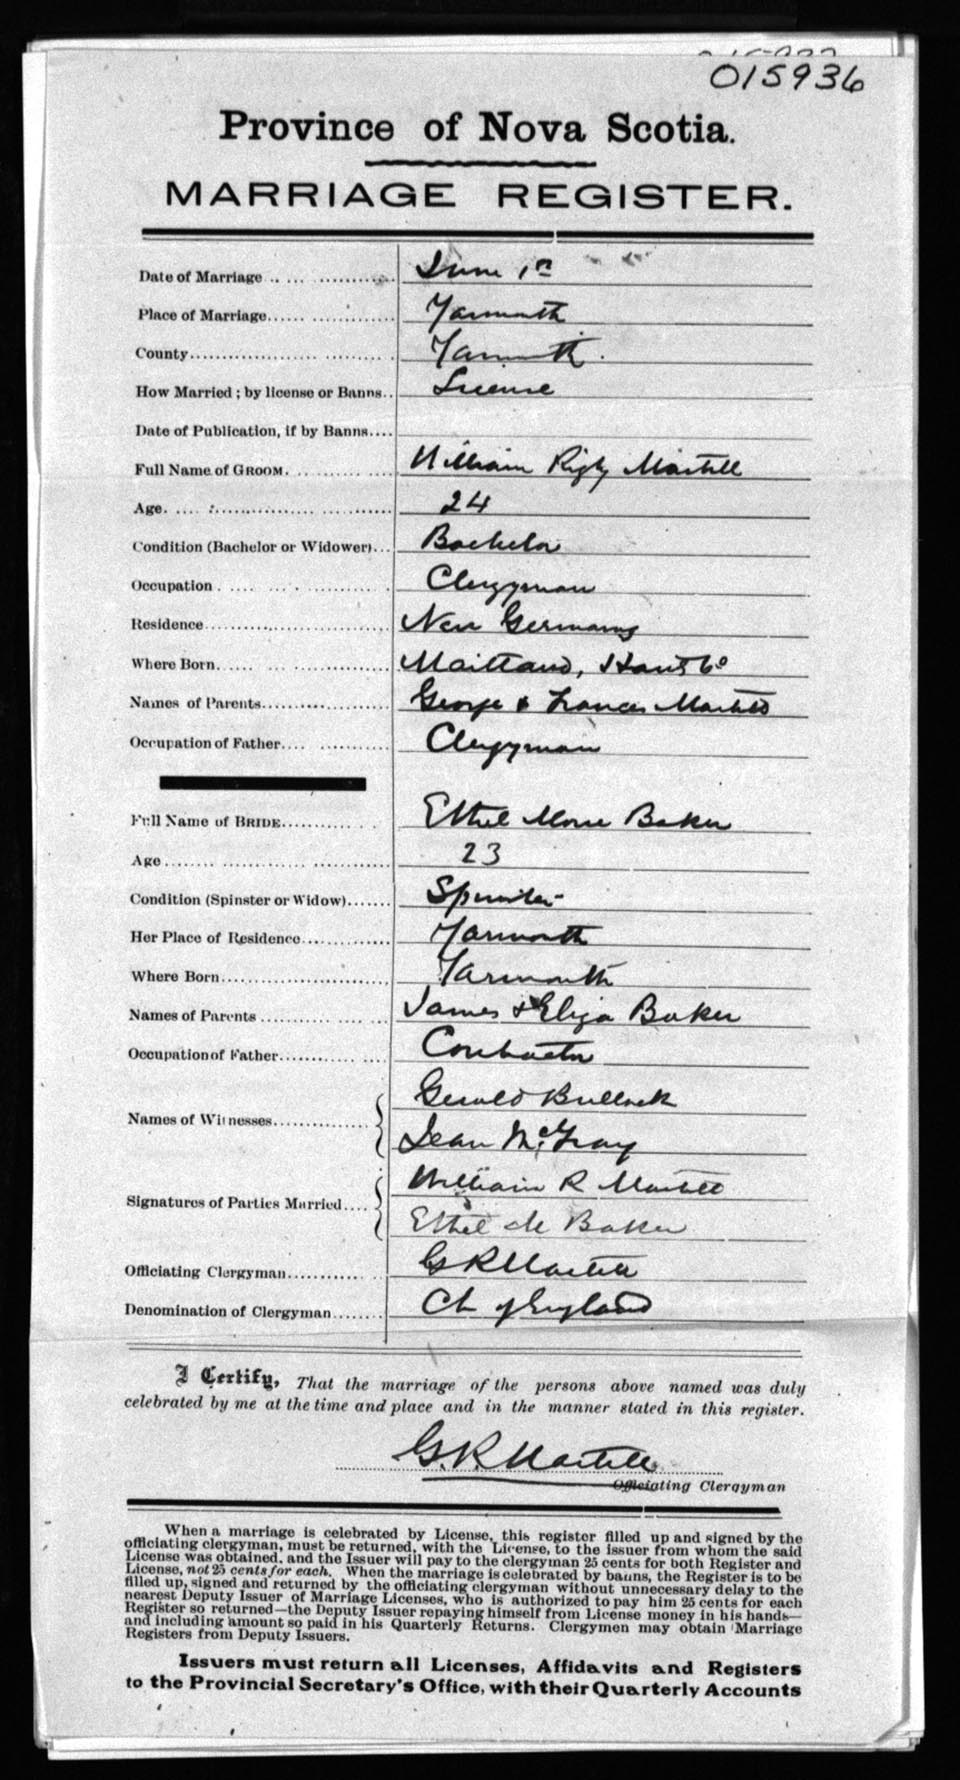 015936
Province of Nova Scotia.
MARRIAGE REGISTER.
Date of Marriage June 1st
Place of Marriage Yarmouth
County Yarmouth.
How Married; by license or Banns License
Date of Publication, if by Banns
Full Name of GROOM. William Rigby Martell
Age 24
Condition (Bachelor or Widower) Bachelor
Occupation Clergyman
Residence New Germany
Where Born Maitland, Hants Co
Names of Parents George & Frances Martell
Occupation of Father Clergyman
Full Name of BRIDE Ethel Morse Baker
Age 23
Condition (Spinster or Widow) Spinster
Her Place of Residence Yarmouth
Where Born Yarmouth
Names of Parents James & Eliza Baker
Occupation of Father Contractor
Gerald Bullock
Names of Witnesses
Jean McGray
William R Martell
Signatures of Parties Married
Ethel M Baker
Officiating Clergyman G R Martell
Denomination of Clergyman Ch of England
I Certify, That the marriage of the persons above named was duly
celebrated by me at the time and place and in the manner stated in this register.
G.R. Martell
Officiating Clergyman
When a marriage is celebrated by License, this register filled up and signed by the
officiating clergyman, must be returned, with the License, to the issuer from whom the said
License was obtained, and the Issuer will pay to the clergyman 25 cents for both Register and
License, not 25 cents for each. When the marriage is celebrated by banns, the Register is to be
filled up, signed and returned by the officiating clergyman without unnecessary delay to the
nearest Deputy Issuer of Marriage Licenses, who is authorized to pay him 25 cents for each
Register so returned—the Deputy Issuer repaying himself from License money in his hands—
and including amount so paid in his Quarterly Returns. Clergymen may obtain Marriage
Registers from Deputy Issuers.
Issuers must return all Licenses, Affidavits and Registers
to the Provincial Secretary's Office, with their Quarterly Accounts